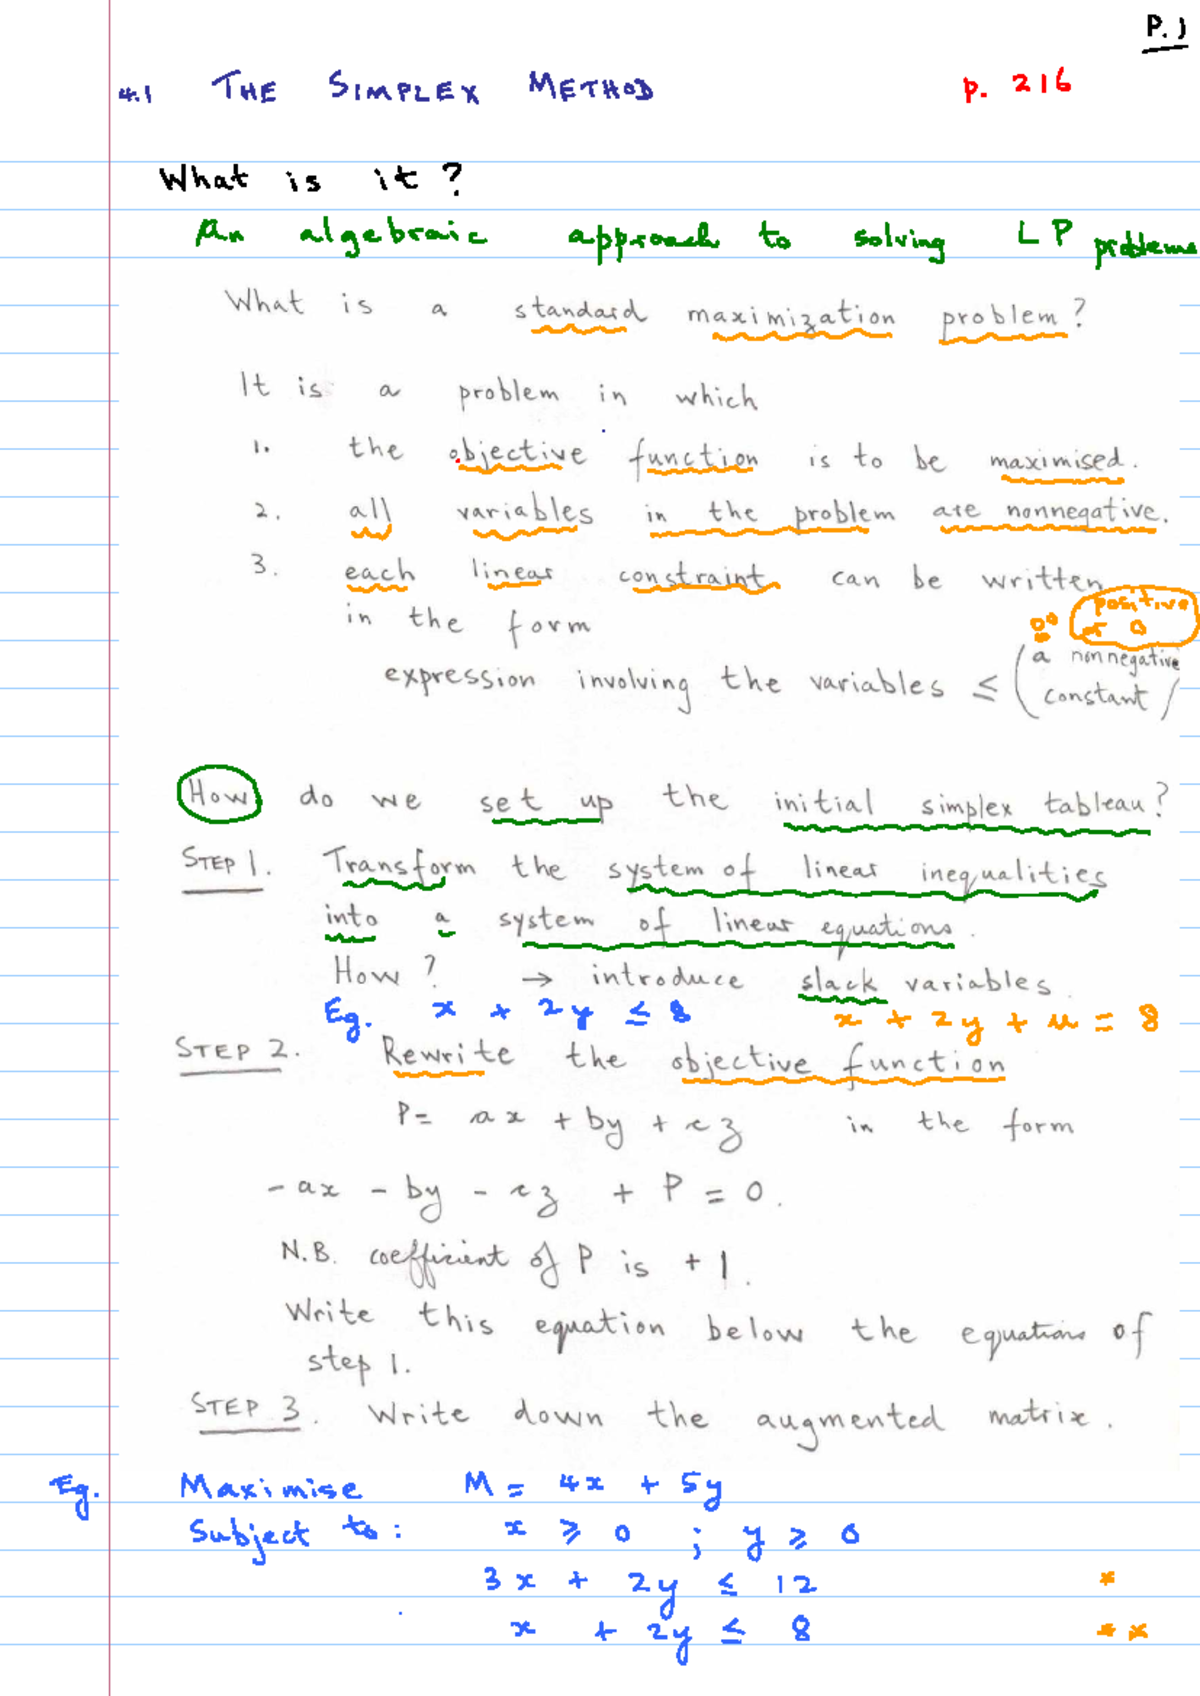 P.1
4.1 THE SIMPLEX METHOD p. 216
What is it?
An algebraic approach to solving LP problems
What is a standard maximization problem?
It is a problem in which
1. the objective function is to be maximised.
2. all variables in the problem are nonnegative.
3. each linear constraint can be written
in the form
positive
or 0
expression involving the variables ≤ (a nonnegative
constant)
How do we set up the initial simplex tableau?
STEP 1. Transform the system of linear inequalities
into a system of linear equations.
How? → introduce slack variables.
Eg. x + 2y ≤ 8 x + 2y + u = 8
STEP 2. Rewrite the objective function
P = ax + by + cz in the form
- ax - by - cz + P = 0.
N.B. coefficient of P is + 1.
Write this equation below the equations of
step 1.
STEP 3. Write down the augmented matrix.
Eg. Maximise M = 4x + 5y
Subject to: x ≥ 0 ; y ≥ 0
3x + 2y ≤ 12 *
x + 2y ≤ 8 **